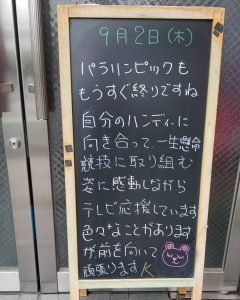 9月2日(木)
パラリンピックも
もうすぐ終りですね
自分のハンディに
向き合って、一生懸命
競技に取り組む
姿に感動しながら
テレビ応援しています
色々なことがあります
が前を向いて
頑張りますK